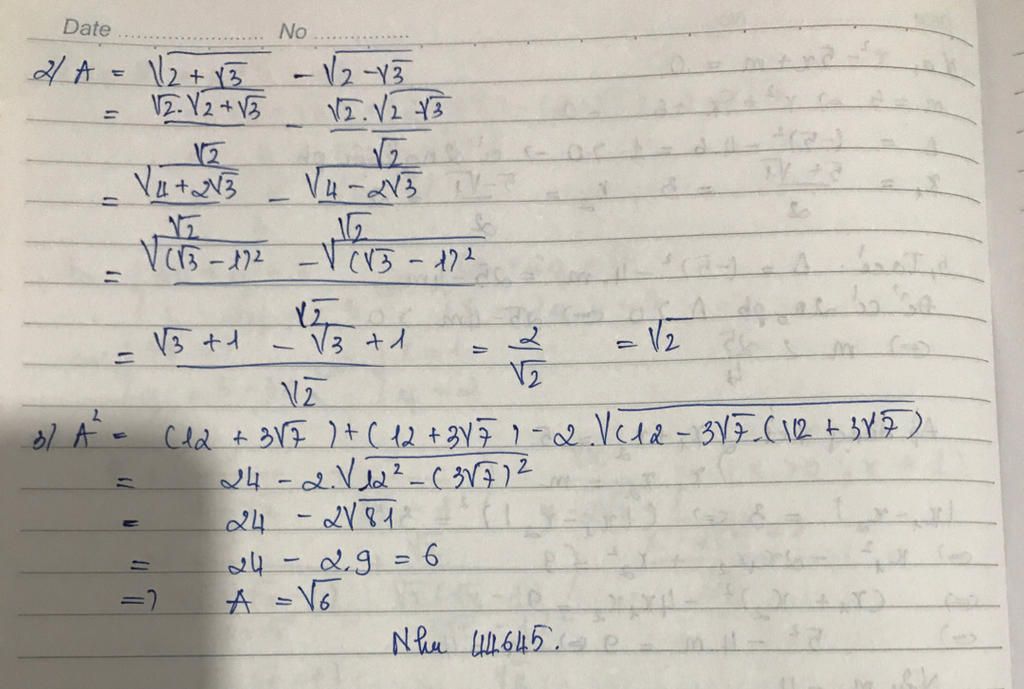 Date ................ No ................
2/ A = √(2 + √3) - √(2 - √3)
= (√2.√(2 + √3))/√2 - (√2.√(2 - √3))/√2
= √(4 + 2√3)/√2 - √(4 - 2√3)/√2
= (√((√3 - 1)²) - √((√3 - 1)²))/√2
= (√3 + 1 - √3 + 1)/√2 = 2/√2 = √2
3) A² = (12 + 3√7) + (12 + 3√7) - 2.√((12 - 3√7.(12 + 3√7))
= 24 - 2.√(12² - (3√7)²)
= 24 - 2√81
= 24 - 2.9 = 6
=> A = √6
Nhu 44645.